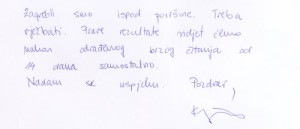 Zagrebli smo ispod površine. Treba
vježbati. Prave rezultate vidjet ćemo
nakon odrađenog brzog čitanja od
14 dana samostalno.
Nadam se uspjehu. Pozdrav!